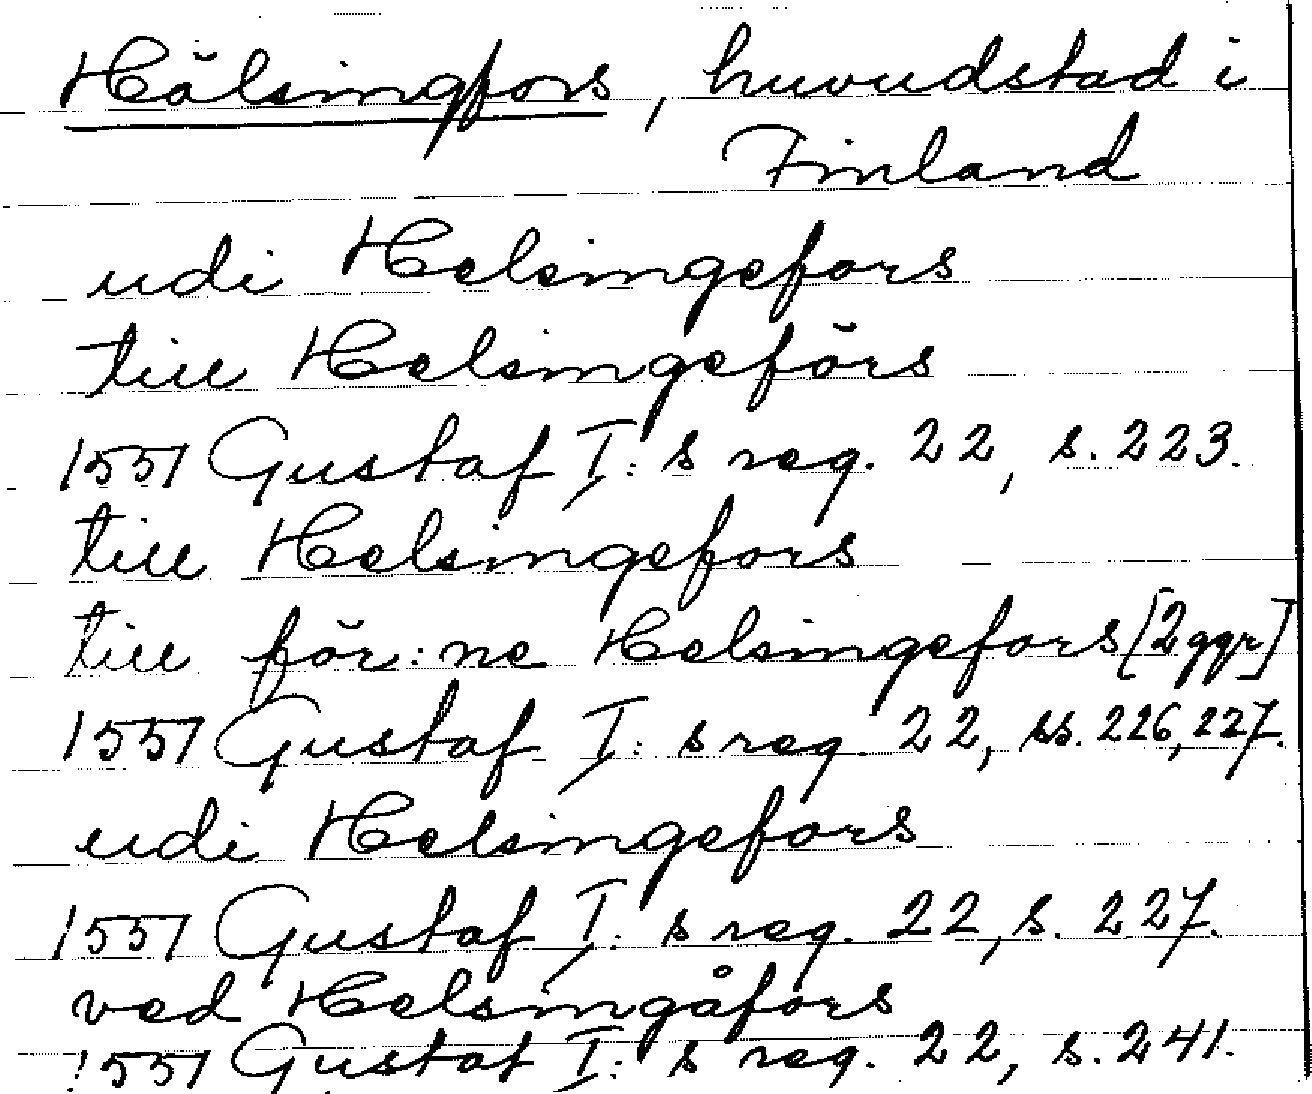 Hälsingfors, huvudstad i
Finland
udi Helsingefors
till Helsingeförs
1551 Gustaf I:s reg. 22, s. 223.
till Helsingefors
till för:ne Helsingefors [2 ggr]
1551 Gustaf I:s reg. 22, ss. 226, 227.
udi Helsingefors
1551 Gustaf I:s reg. 22, s. 227.
ved Helsingåfors
1551 Gustaf I:s reg. 22, s. 241.